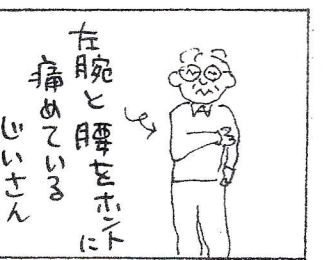 左腕と腰をホントに
痛めている
じいさん